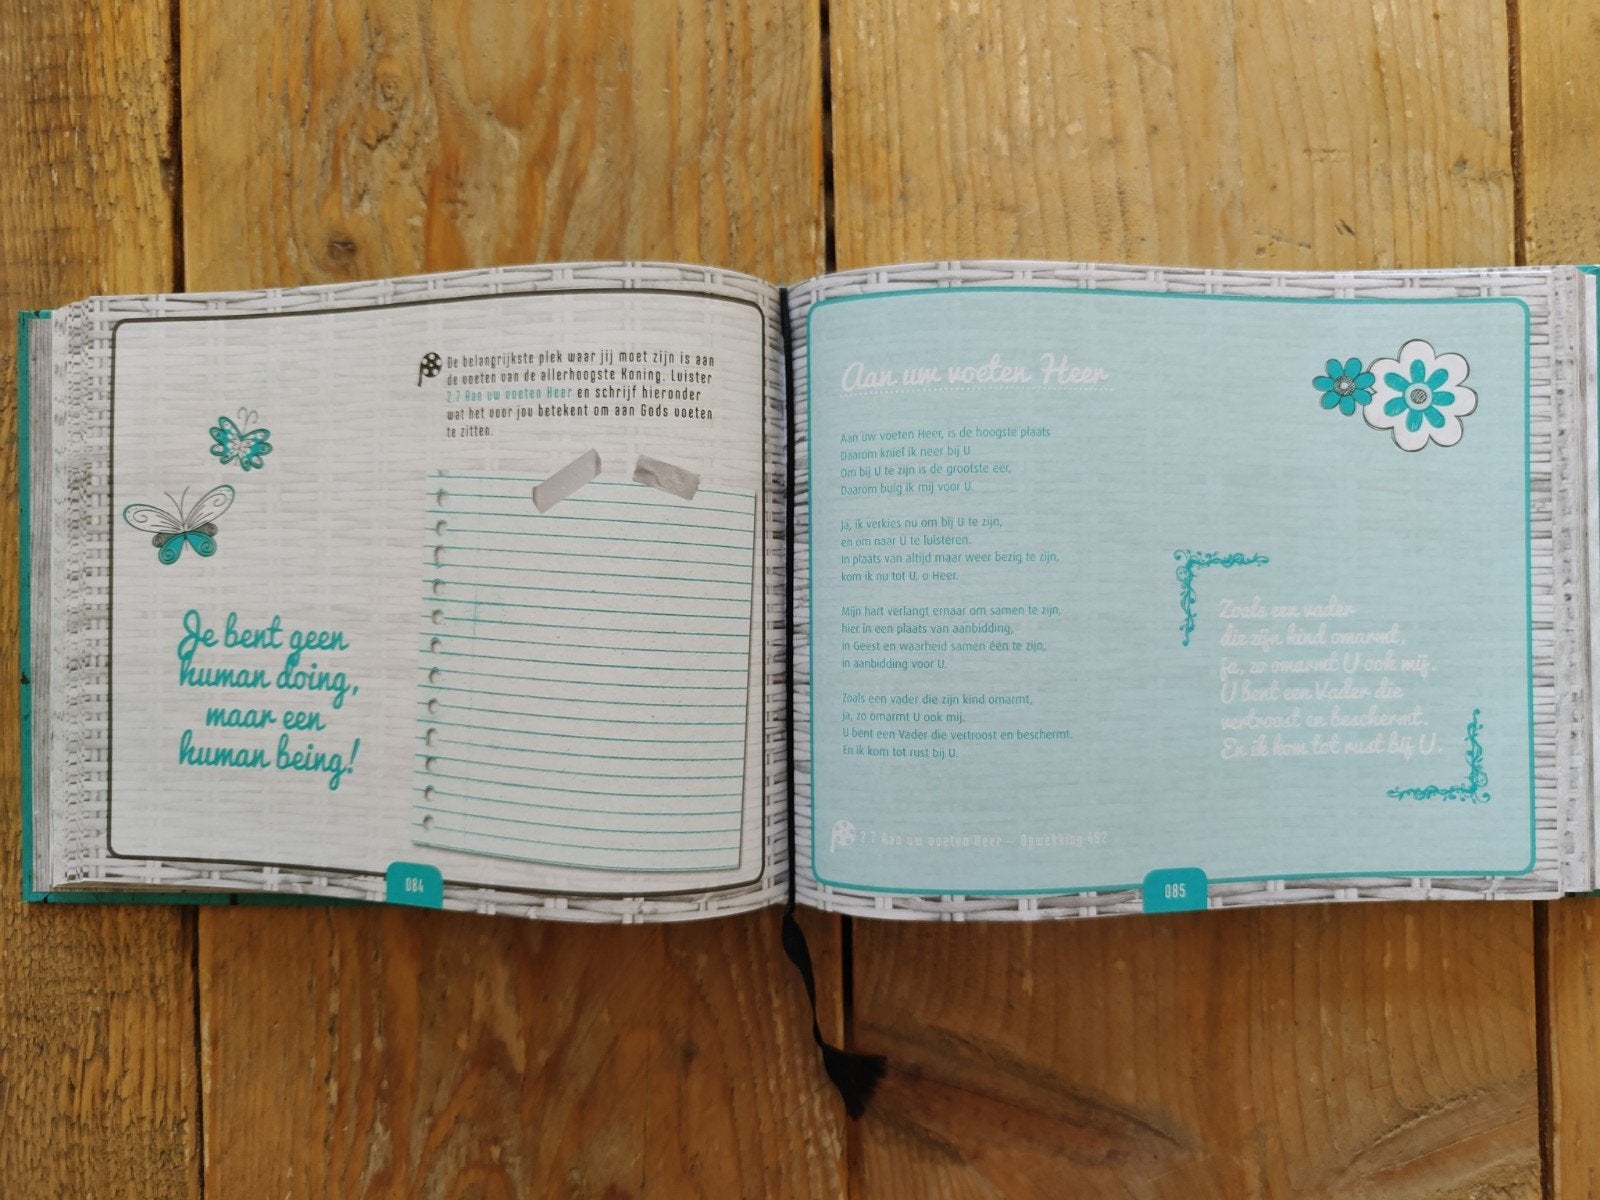 De belangrijkste plek waar jij moet zijn is aan
de voeten van de allerhoogste Koning. Luister
2.7 Aan uw voeten Heer en schrijf hieronder
wat het voor jou betekent om aan Gods voeten
te zitten.
Je bent geen
human doing,
maar een
human being!
084
Aan uw voeten Heer
Aan uw voeten Heer, is de hoogste plaats
Daarom kniel ik neer bij U
Om bij U te zijn is de grootste eer,
Daarom buig ik mij voor U.
Ja, ik verkies nu om bij U te zijn,
en om naar U te luisteren.
In plaats van altijd maar weer bezig te zijn,
kom ik nu tot U, o Heer.
Mijn hart verlangt ernaar om samen te zijn,
hier in een plaats van aanbidding,
in Geest en waarheid samen één te zijn,
in aanbidding voor U.
Zoals een vader die zijn kind omarmt,
ja, zo omarmt U ook mij.
U bent een Vader die vertroost en beschermt.
En ik kom tot rust bij U.
Zoals een vader
die zijn kind omarmt,
ja, zo omarmt U ook mij.
U bent een Vader die
vertroost en beschermt.
En ik kom tot rust bij U.
2.7 Aan uw voeten Heer – Opwekking 462
085